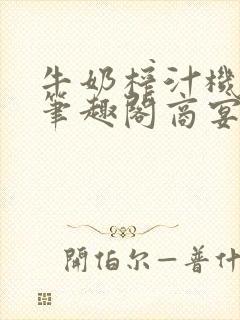 牛奶榨汁機
筆趣閣高宴
開伯尔—普什